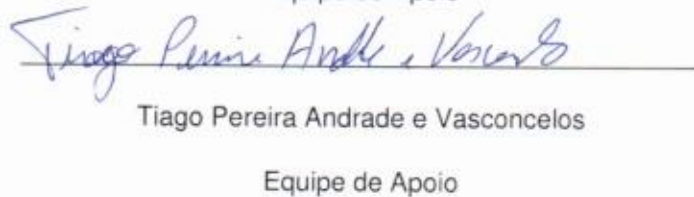 Tiago Pereira Andrade e Vasconcelos
Tiago Pereira Andrade e Vasconcelos
Equipe de Apoio